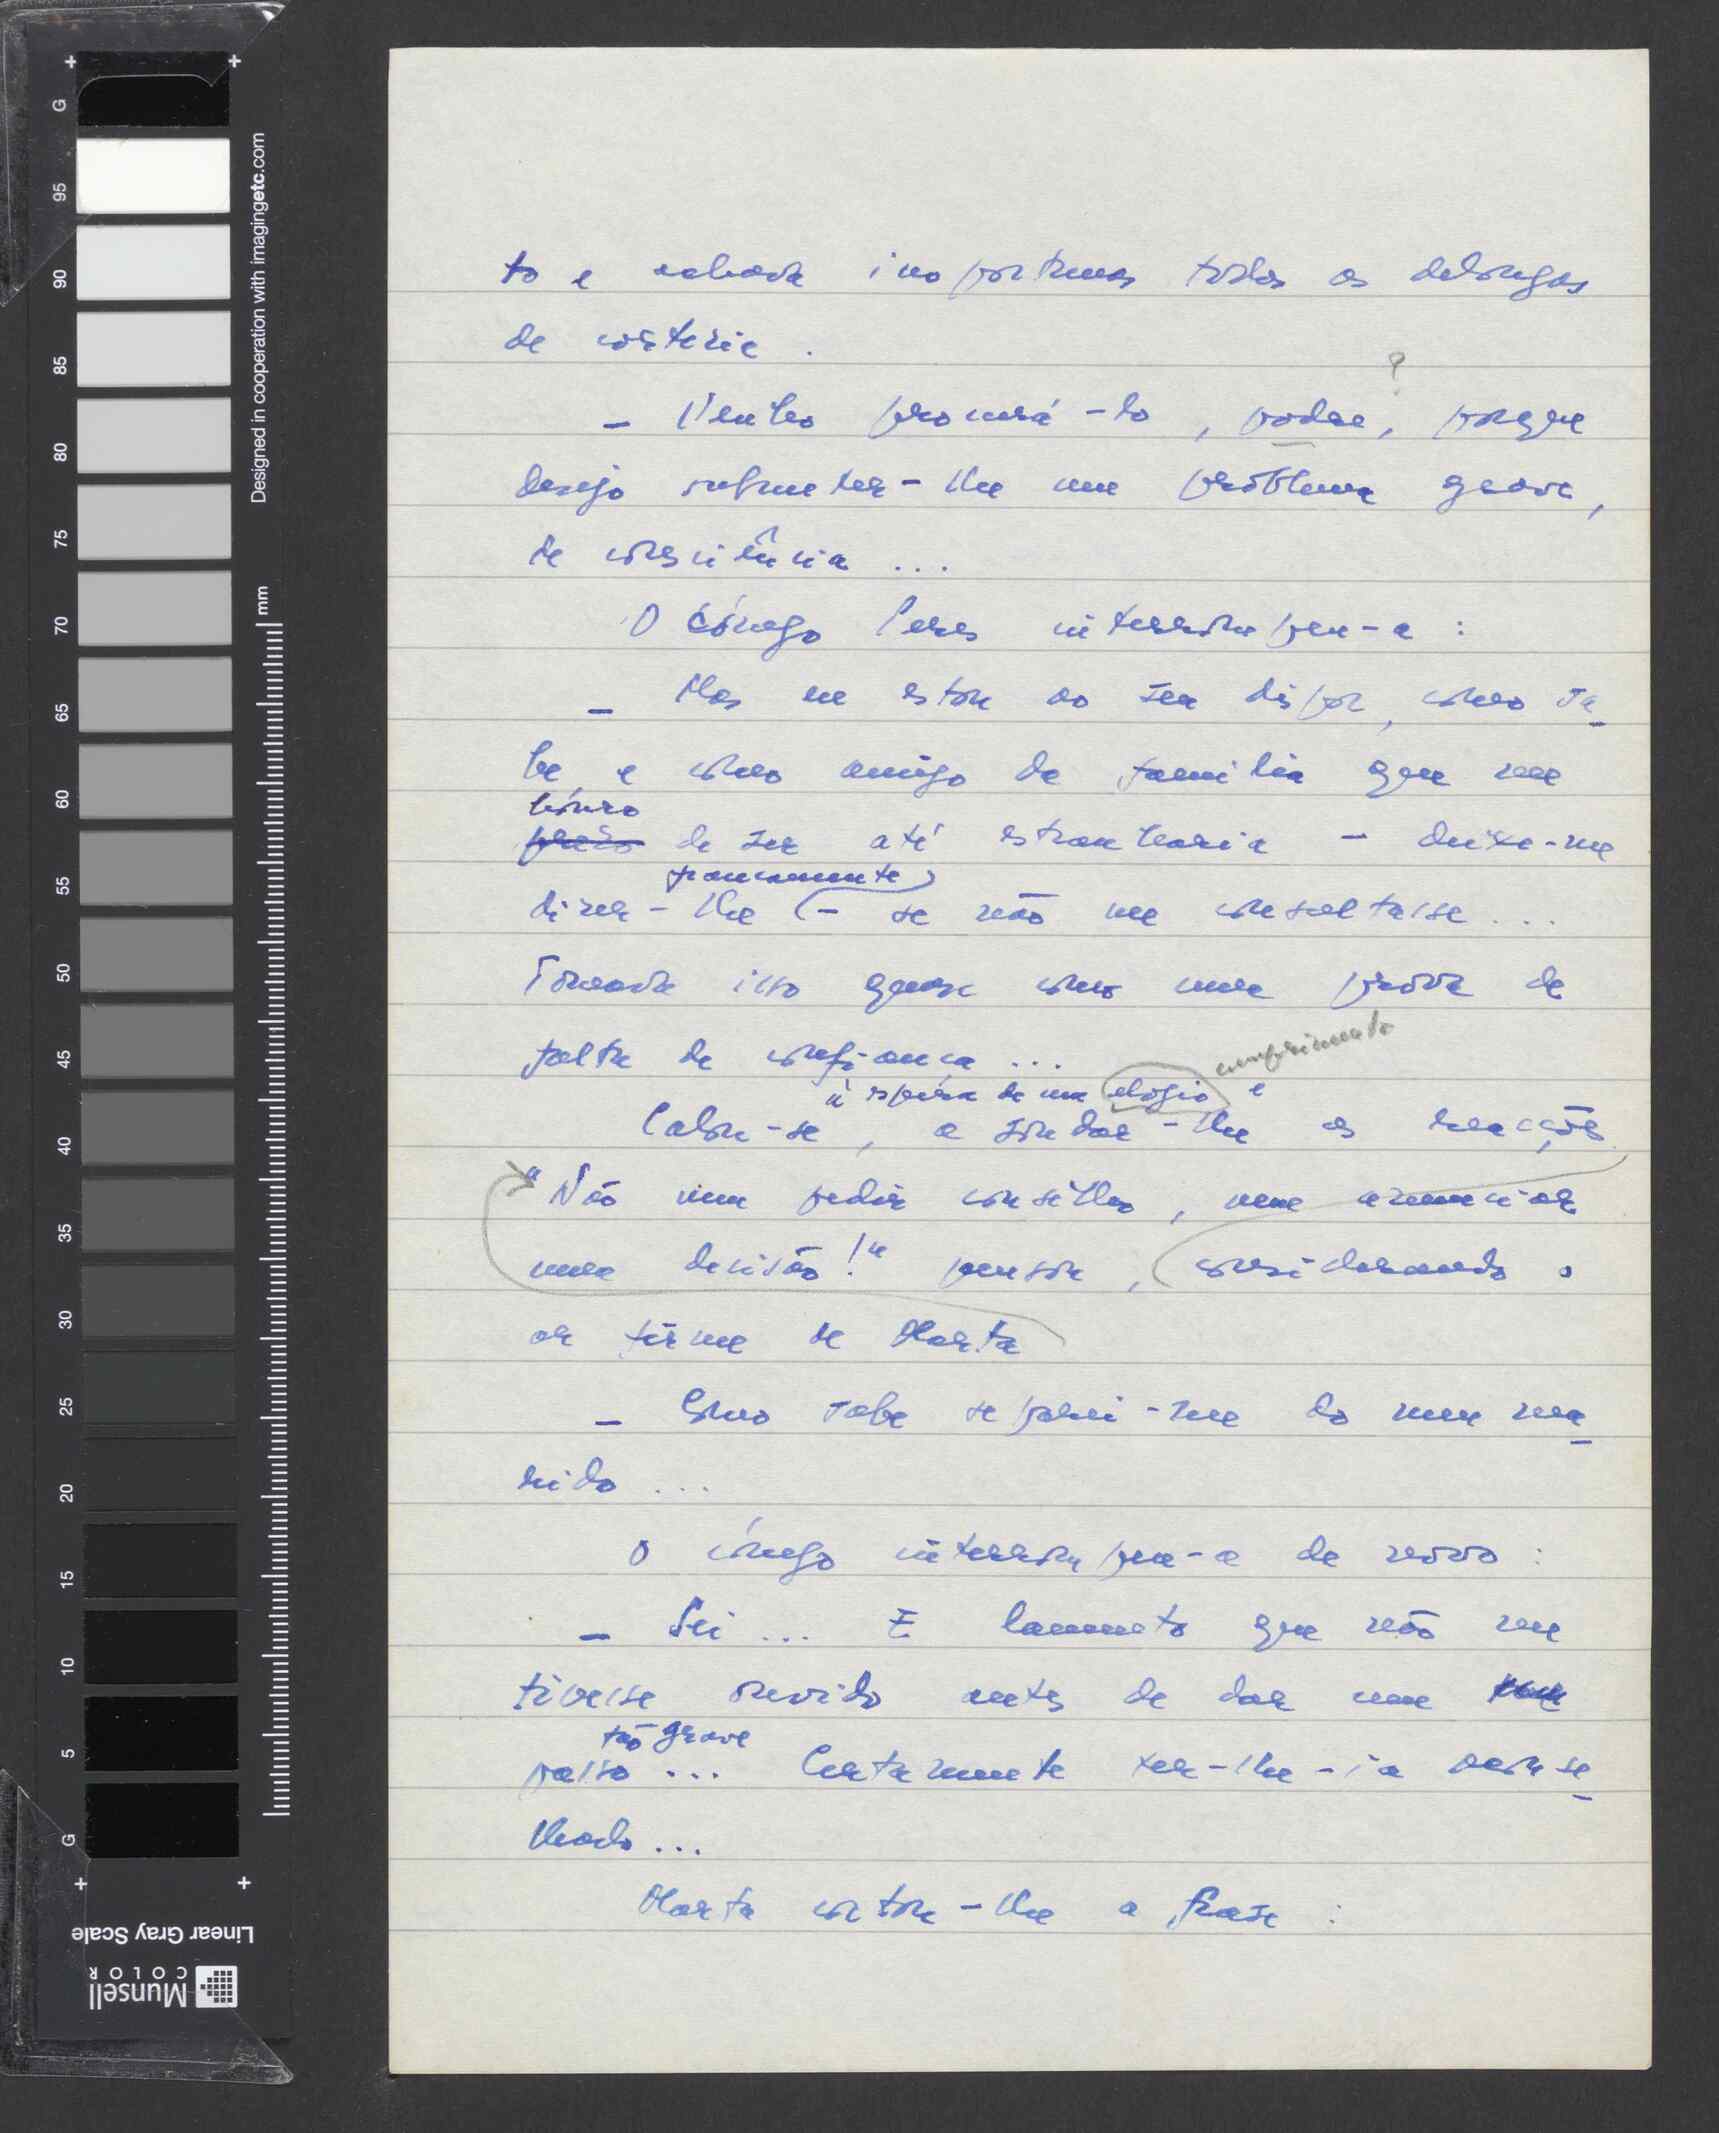 to e achava inoportunas todas as delongas
de cortezia.
?
– Venho procurá-lo, padre, porque
desejo submeter-lhe um problema grave,
de consciência ...
O cónego Peres interrompeu-a:
– Mas eu estou ao seu dispor, como sa-
be, e como amigo da família que me
honro
prezo de ser até estranharia – deixe-me
francamente
dizer-lhe – se não me consultasse ...
Tomava isso quase como uma prova de
falta de confiança ...
cumprimento
à espera de um elogio e
Calou-se, a sondar-lhe as reacções
"Não vem pedir conselhos, vem anunciar
uma decisão!" pensou, considerando o
ar firme de Marta
– Como sabe separei-me do meu ma-
rido ...
O cónego interrompeu-a de novo:
– Sei ... E lamento que não me
tivesse ouvido antes de dar um
tão grave
passo ... Certamente ter-lhe-ia aconse-
lhado ...
Marta cortou-lhe a frase:
G
95
90
85
80
75
70
65
60
55
50
45
40
35
30
25
20
15
10
5
G
mm
Designed in cooperation with imagingetc.com
Linear Gray Scale
Munsell
COLOR